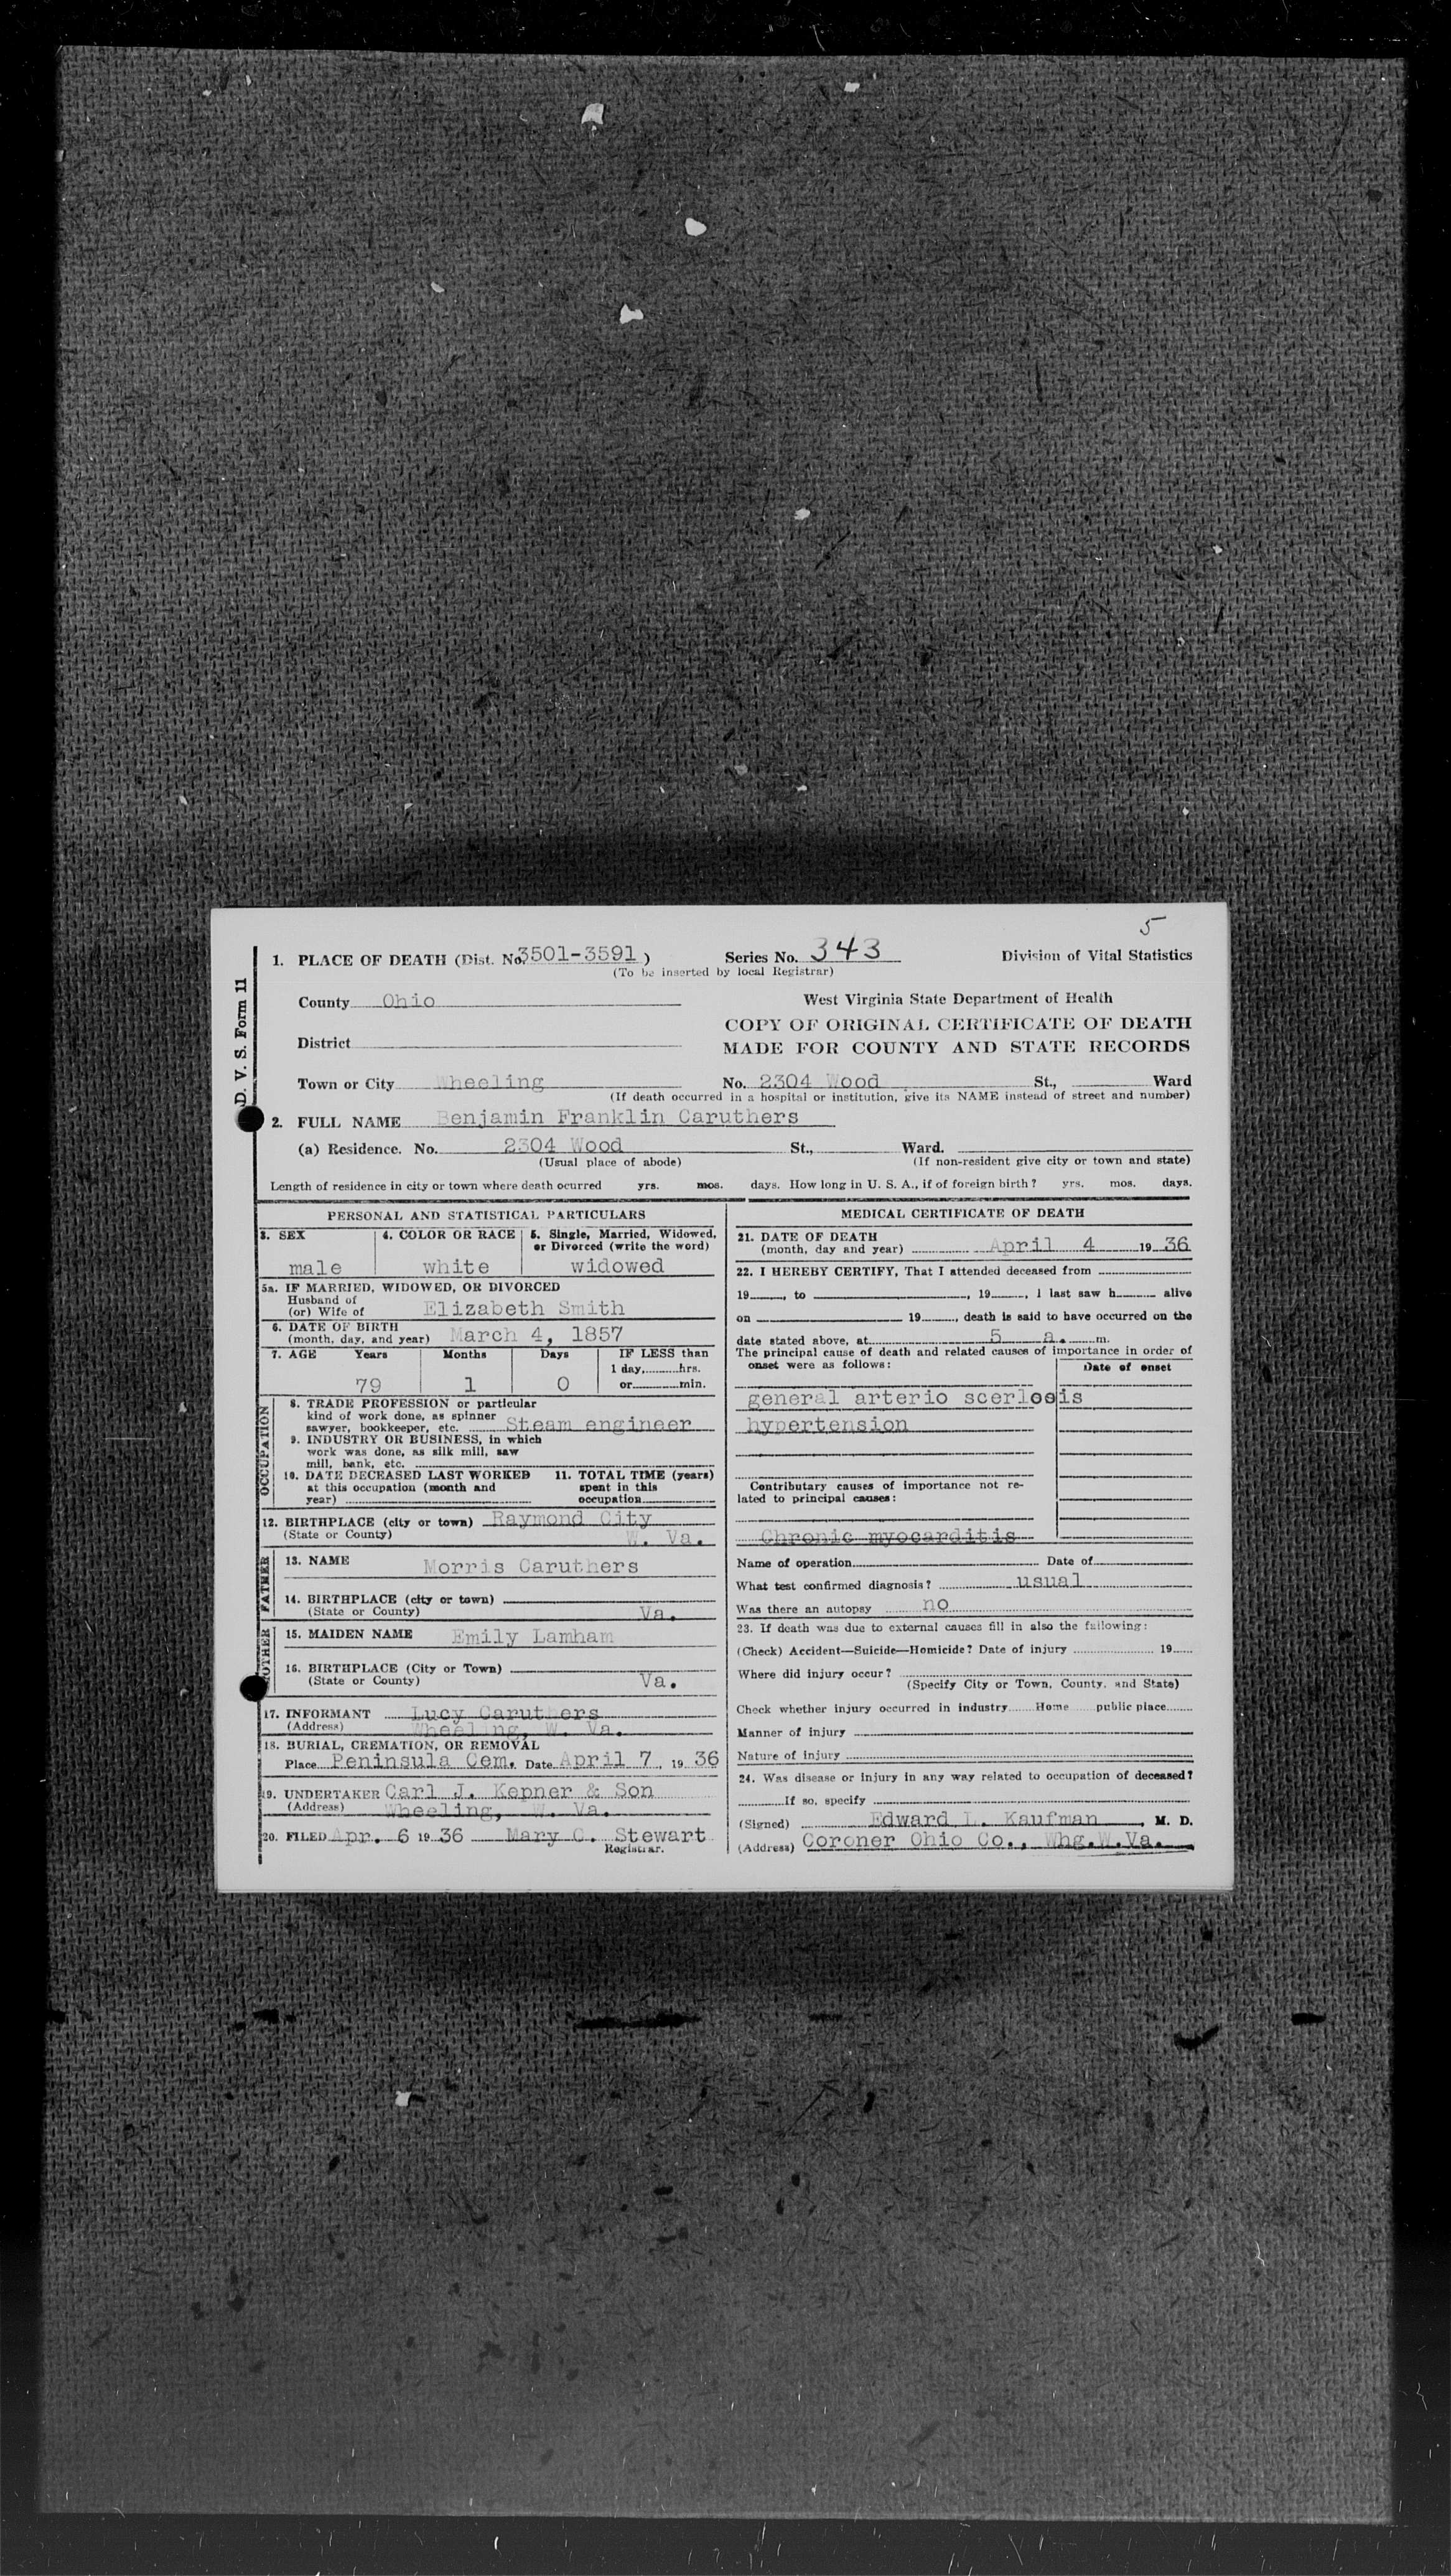 5
1. PLACE OF DEATH (Dist. No. 3501-3591 ) Series No. 343 Division of Vital Statistics
(To be inserted by local Registrar)
D. V. S. Form 11
County Ohio West Virginia State Department of Health
COPY OF ORIGINAL CERTIFICATE OF DEATH
District MADE FOR COUNTY AND STATE RECORDS
Town or City Wheeling No. 2304 Wood St., Ward
(If death occurred in a hospital or institution, give its NAME instead of street and number)
2. FULL NAME Benjamin Franklin Caruthers
(a) Residence. No. 2304 Wood St., Ward.
(Usual place of abode) (If non-resident give city or town and state)
Length of residence in city or town where death ocurred yrs. mos. days. How long in U. S. A., if of foreign birth? yrs. mos. days.
PERSONAL AND STATISTICAL PARTICULARS
3. SEX 4. COLOR OR RACE 5. Single, Married, Widowed,
or Divorced (write the word)
male white widowed
5a. IF MARRIED, WIDOWED, OR DIVORCED
Husband of
(or) Wife of Elizabeth Smith
6. DATE OF BIRTH
(month, day, and year) March 4, 1857
7. AGE Years Months Days IF LESS than
1 day, hrs.
79 1 0 or min.
OCCUPATION
8. TRADE PROFESSION or particular
kind of work done, as spinner
sawyer, bookkeeper, etc. Steam engineer
9. INDUSTRY OR BUSINESS, in which
work was done, as silk mill, saw
mill, bank, etc.
10. DATE DECEASED LAST WORKED 11. TOTAL TIME (years)
at this occupation (month and spent in this
year) occupation
12. BIRTHPLACE (city or town) Raymond City
(State or County) W. Va.
FATHER
13. NAME Morris Caruthers
14. BIRTHPLACE (city or town)
(State or County) Va.
MOTHER
15. MAIDEN NAME Emily Lamham
16. BIRTHPLACE (City or Town)
(State or County) Va.
17. INFORMANT Lucy Caruthers
(Address) Wheeling, W. Va.
18. BURIAL, CREMATION, OR REMOVAL
Place Peninsula Cem. Date April 7, 19 36
19. UNDERTAKER Carl J. Kepner & Son
(Address) Wheeling, W. Va.
20. FILED Apr. 6 19 36 Mary C. Stewart
Registrar.
MEDICAL CERTIFICATE OF DEATH
21. DATE OF DEATH
(month, day and year) April 4 19 36
22. I HEREBY CERTIFY, That I attended deceased from
19 , to , 19 , I last saw h alive
on 19 , death is said to have occurred on the
date stated above, at 5 a. m.
The principal cause of death and related causes of importance in order of
onset were as follows: Date of onset
general arterio scerlosis
hypertension
Contributary causes of importance not re-
lated to principal causes:
Chronic myocarditis
Name of operation Date of
What test confirmed diagnosis? usual
Was there an autopsy no
23. If death was due to external causes fill in also the fallowing:
(Check) Accident—Suicide—Homicide? Date of injury 19
Where did injury occur?
(Specify City or Town, County, and State)
Check whether injury occurred in industry Home public place
Manner of injury
Nature of injury
24. Was disease or injury in any way related to occupation of deceased?
If so, specify
(Signed) Edward L. Kaufman , M. D.
(Address) Coroner Ohio Co., Whg.W.Va.